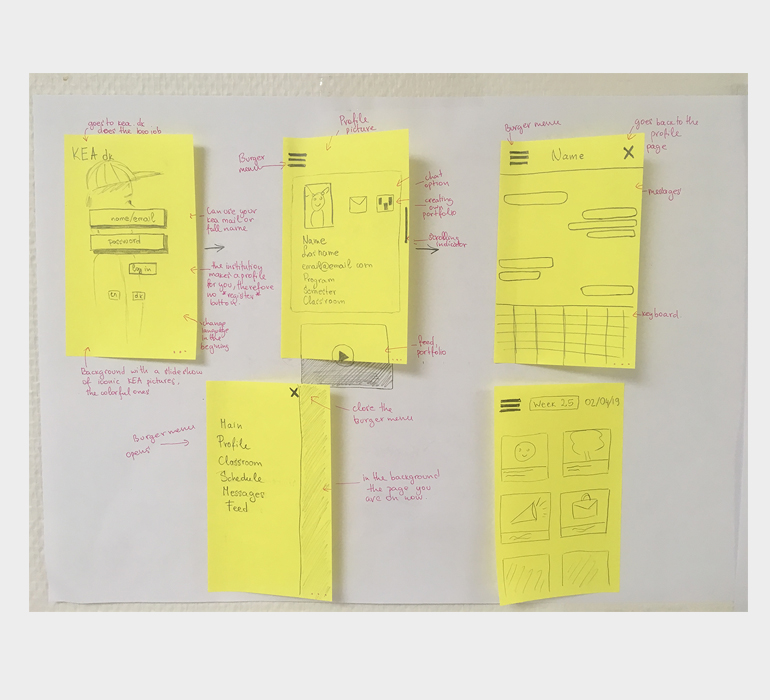 goes to kea.dk
does the logo job
KEA dk
name/email
password
log in
en
dk
Can use your
kea mail or
full name
the institution
makes a profile
for you, therefore
no "register"
button.
change
language
in the
begining
Background with a slideshow
of iconic KEA pictures.
the colorful ones
Profile
picture
Burger
menu
chat
option
creating
own
portfolio
scrolling
indicator
Name
Last name
email@email.com
Program
Semester
Classroom
feed
portfolio
Burger menu
goes back to the
profile
page
Name
X
messages
keyboard
Burger menu
opens
X
Main
Profile
Classroom
Schedule
Messages
Feed
close the
burger menu
in the background
the page you
are on now
Week 25
02/04/19